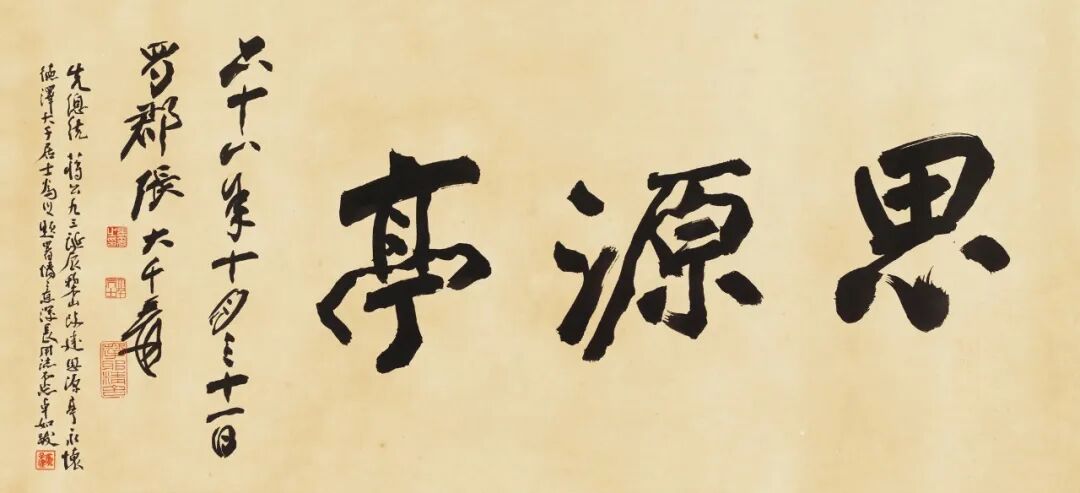 思源亭
六十八年十月三十一日
蜀郡張大千爰
先總統 蔣公九三誕辰山建思源亭永懷
德澤大千居士為題署情意深長用誌卓如跋